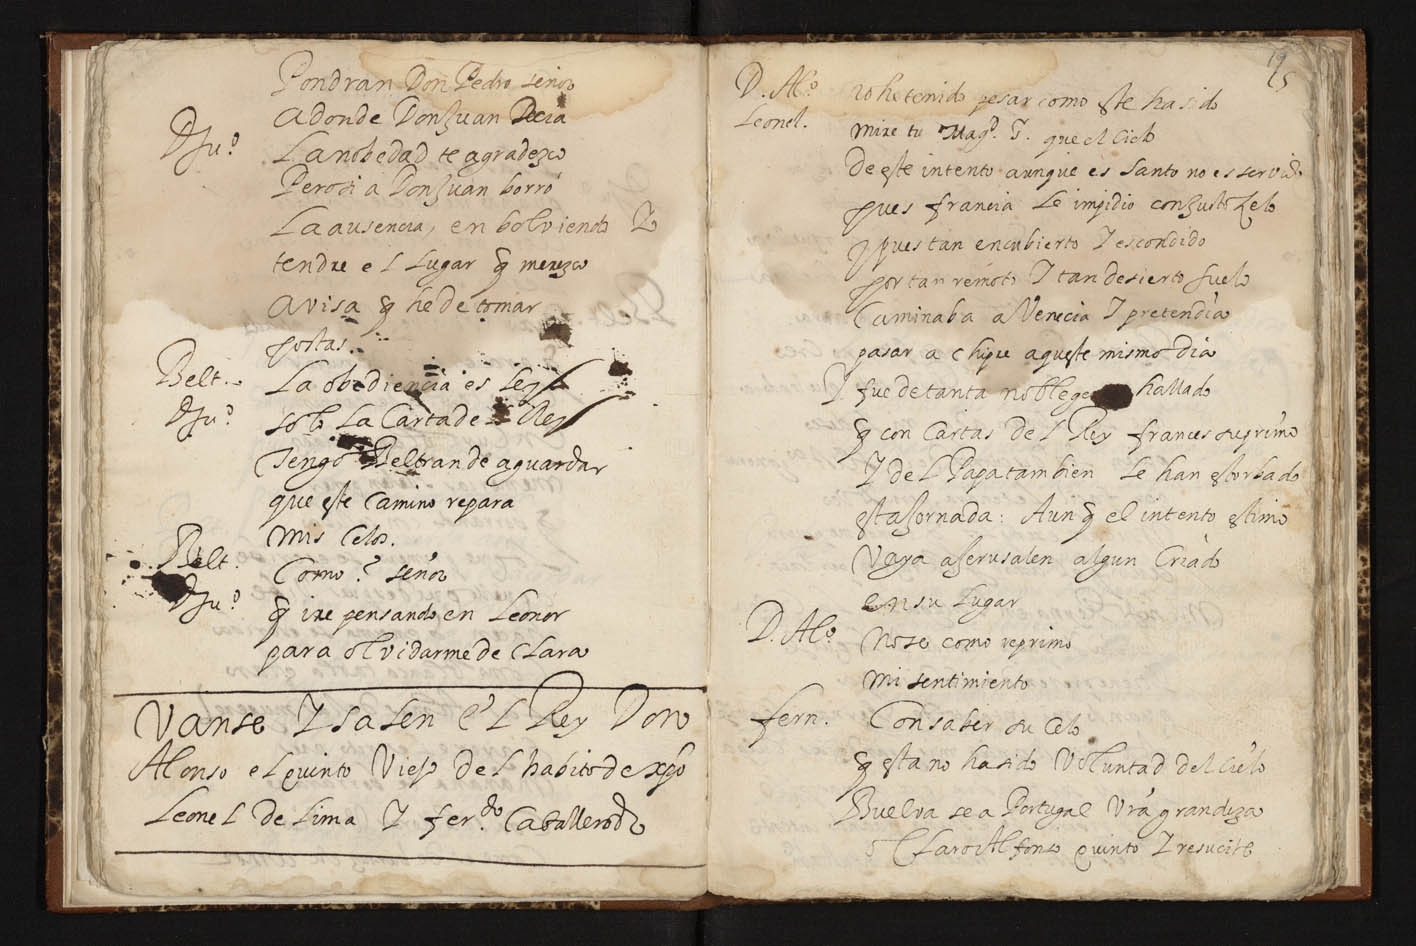 Pondran Don Pedro señor
adonde Don Juan Decia
D Ju.º La nobedad te agradezco
Pero si a Don Juan borró
La ausencia, en bolviendo Yo
tendre el Lugar q merezco
avisa q he de tomar
postas.
Belt. La obediencia es Ley
D Ju.º solo La Carta del Rey
Tengo Beltran de aguardar
que este Camino repara
mis Celos.
Belt. Como? señor
D Ju.º q ire pensando en Leonor
para olvidarme de Clara
Vanse Y salen el Rey Don
Alonso el quinto Viejo del habito de xpo
Leonel de Lima Y fer.do Caballeros
15
D. Al.º Yo he tenido pesar como este ha sido
Leonel. mire tu Mag.d que el Cielo
de este intento aunque es santo no es servido
pues francia Le impidio con Justo Zelo
pues tan encubierto Y escondido
por tan remoto Y tan desierto suelo
Caminaba a Venecia Y pretendia
pasar a chipre aqueste mismo dia
Y fue de tanta noblege hallado
q con Cartas del Rey frances su primo
Y del Papa tambien Le han estorbado
esta Jornada: Aunq el intento estimo
Vaya a Jerusalen algun Criado
en su Lugar
D. Al.º No se como reprimo
mi sentimiento
fern. Con saber su Celo
q esta no ha sido Voluntad del Cielo
Buelvase a Portugal Vra grandeza
o Claro Alfonso quinto Y resucite